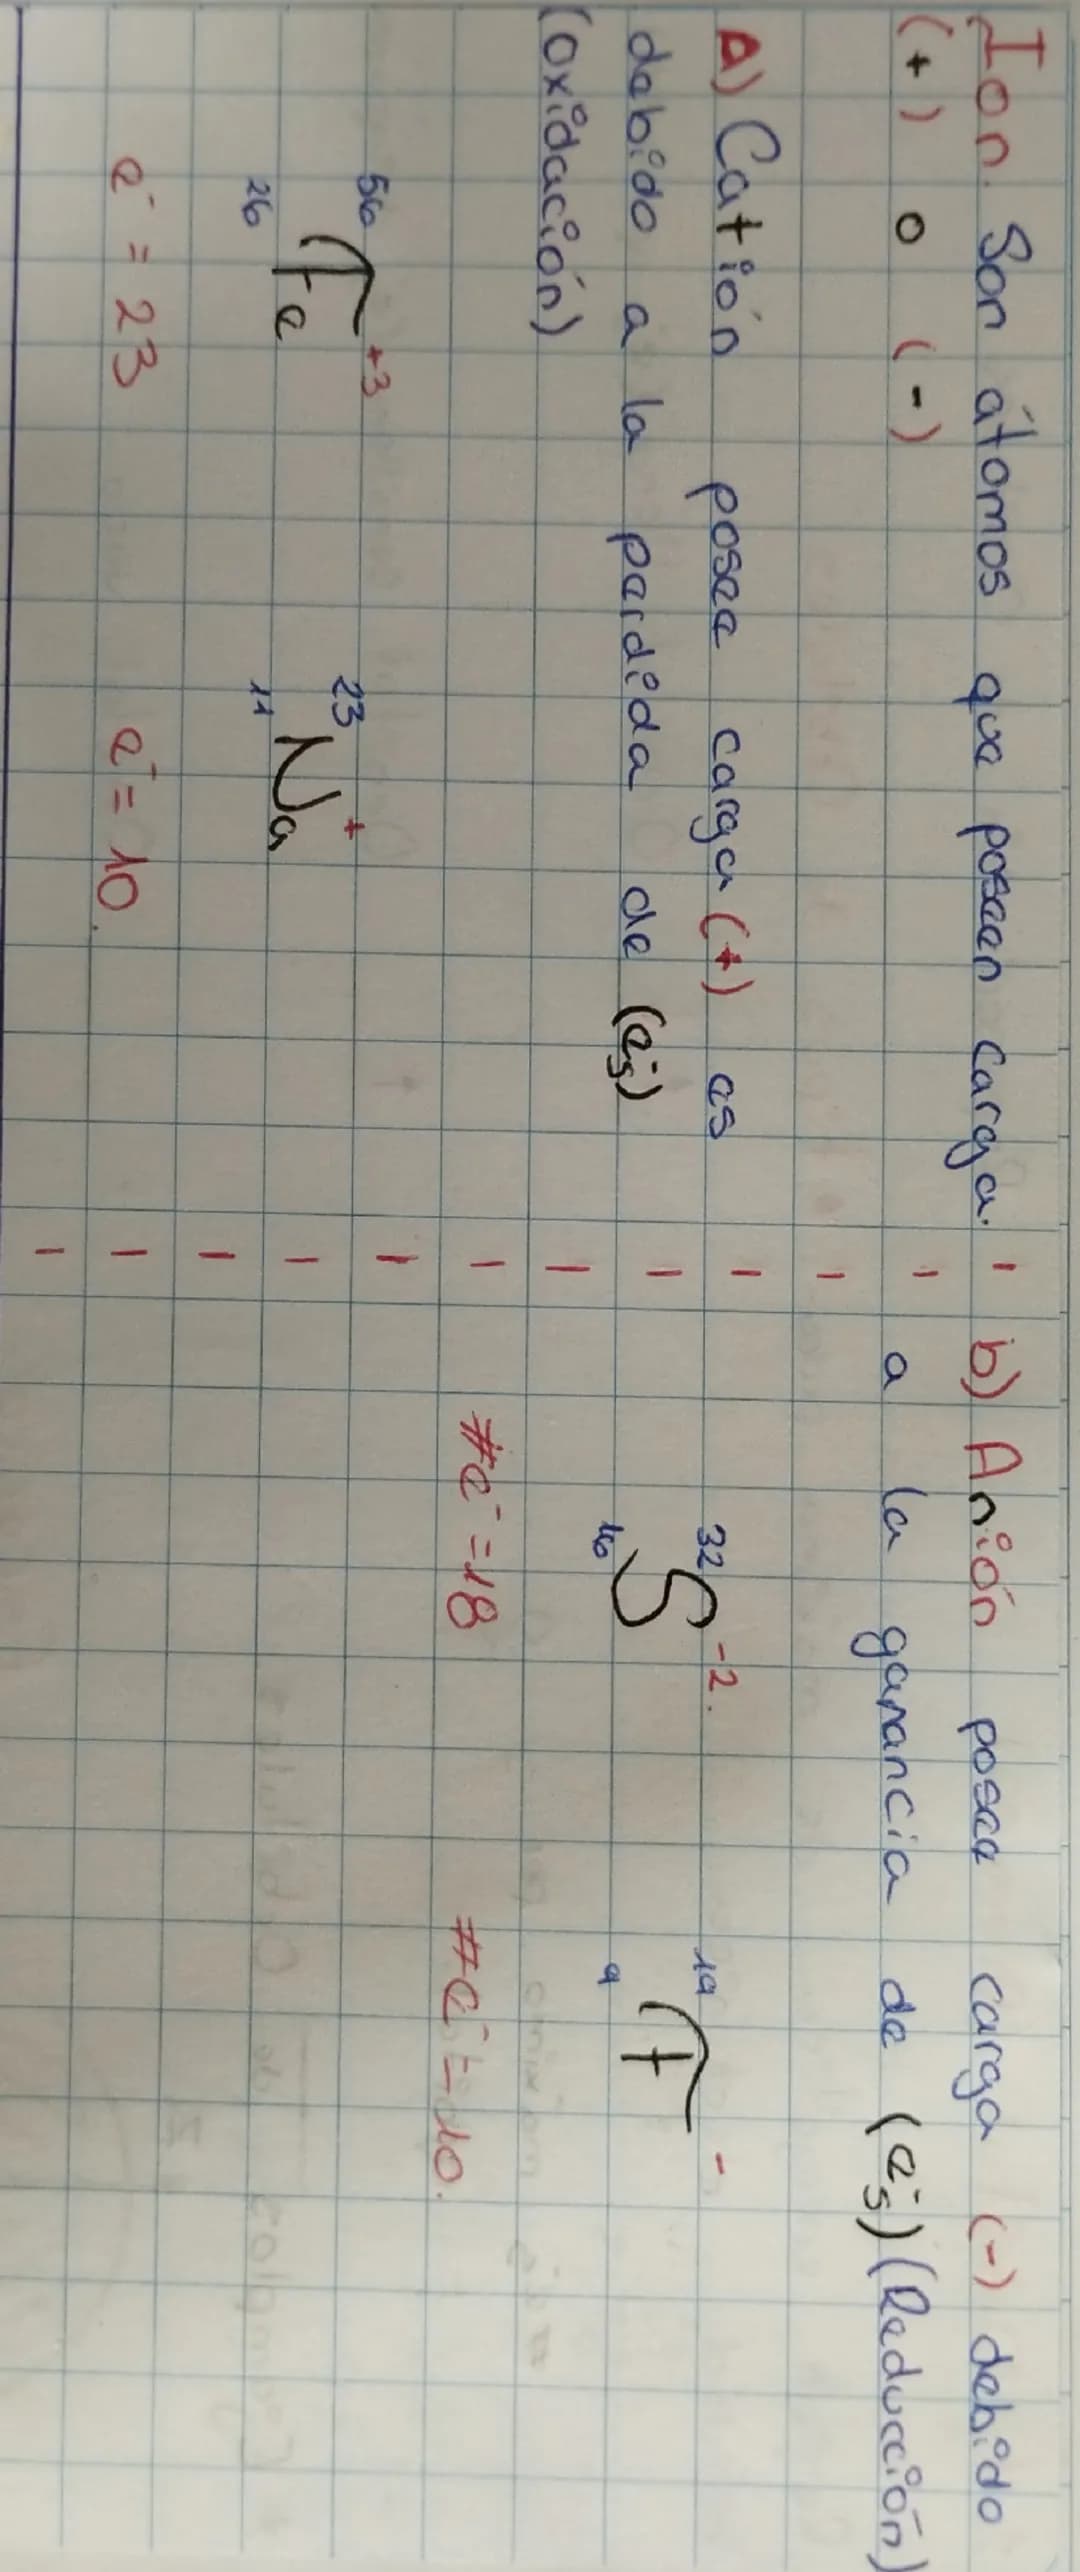 Ion. Son átomos que poseen carga.
(+) o (-)
A) Catión posee carga (+) es
debido a la perdida de (e⁻s)
(oxidación)
56 Fe +3
26
23 Na +
11
e⁻ = 23
e⁻ = 10.
b) Anión posee carga (-) debido
a la ganancia de (e⁻s) (Reducción)
32 S -2.
16
19 F -
9
#e⁻ = 18
#e⁻ = 10.